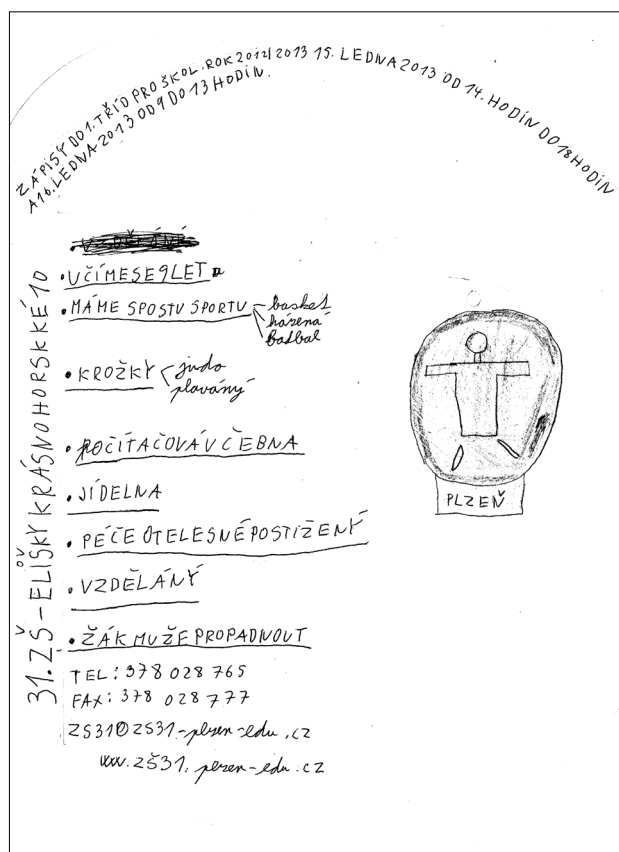 ZÁPISY DO 1. TŘÍD PRO ŠKOL. ROK 2012/2013 15. LEDNA 2013 OD 14. HODIN DO 18 HODIN
A 16. LEDNA 2013 OD 9 DO 13 HODIN.
31. ZŠ - ELIŠKY KRÁSNOHORSKKÉ 10
OV
• UČÍME SE 9 LET
• MÁME SPOSTU SPORTU
basket
házená
batbal
• KROŽKY
judo
plaváný
• POČÍTAČOVÁ UČEBNA
• JÍDELNA
• PÉČE O TELESNÉ POSTIŽENÝ
• VZDĚLÁNÝ
• ŽÁK MUŽE PROPADNOUT
TEL: 378 028 765
FAX: 378 028 777
ZS31@ZS31-plzen-edu.cz
www.ZŠ31.plzen-edu.cz
PLZEŇ